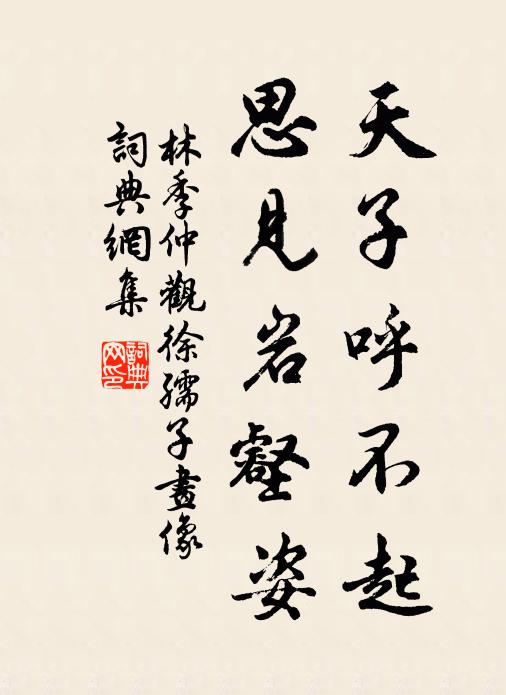 天子呼不起
思見岩壑姿
林季仲觀徐孺子畫像
詞典網集
詞典网印